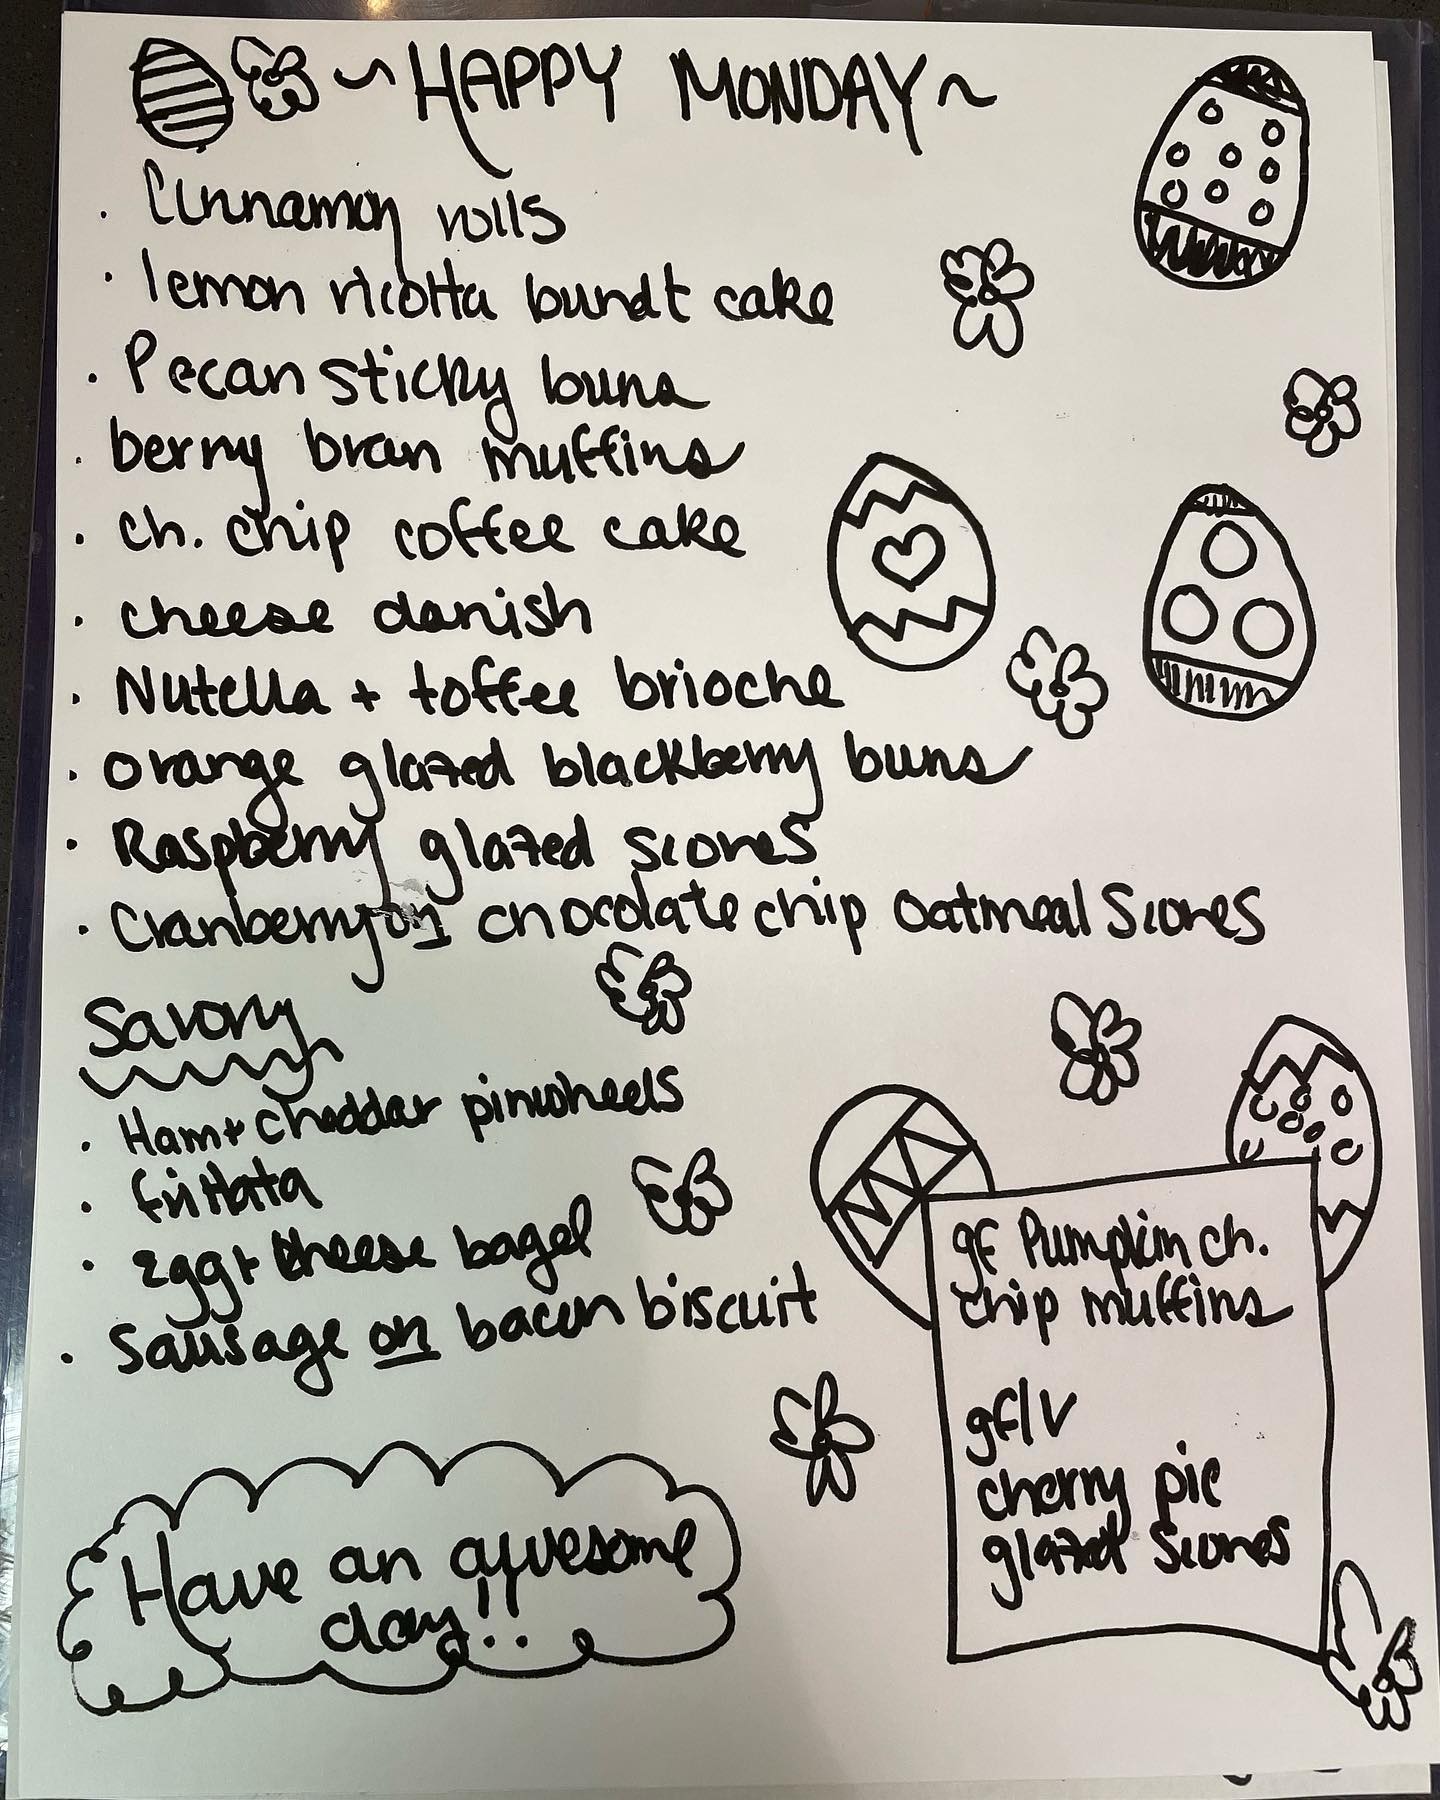 ~HAPPY MONDAY~
· Cinnamon rolls
· lemon ricotta bundt cake
· Pecan sticky buns
· berry bran muffins
· ch. chip coffee cake
· cheese danish
· Nutella + toffee brioche
· orange glazed blackberry buns
· Raspberry glazed scones
· Cranberry or chocolate chip oatmeal Scones
Savory
· Ham + cheddar pinwheels
· frittata
· Egg + cheese bagel
· Sausage or bacon biscuit
gf Pumpkin ch.
chip muffins
gf/V
cherry pie
glazed scones
Have an awesome
day!!